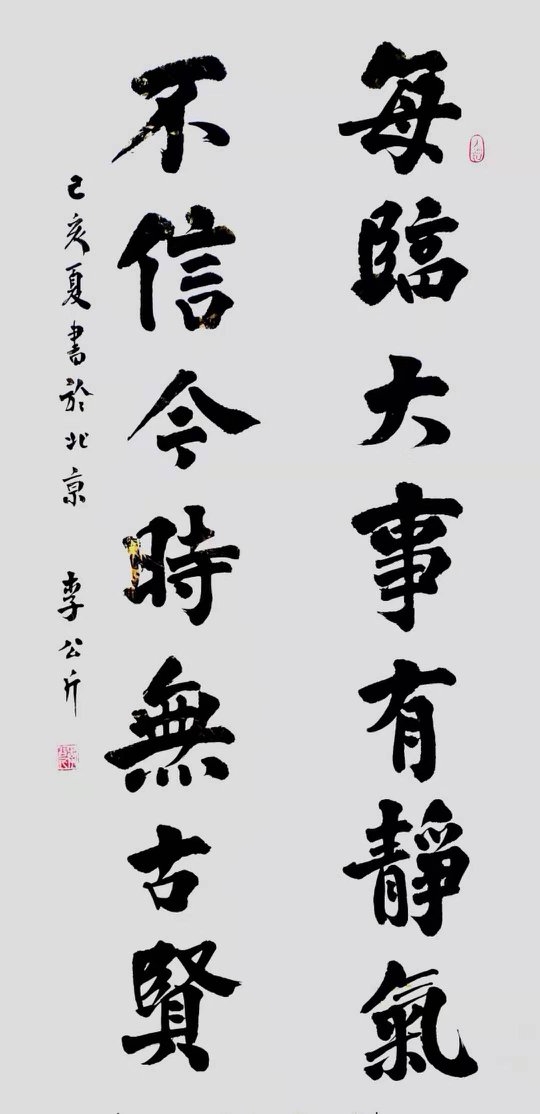 每臨大事有靜氣
不信今時無古賢
己亥夏書於北京 李公斤